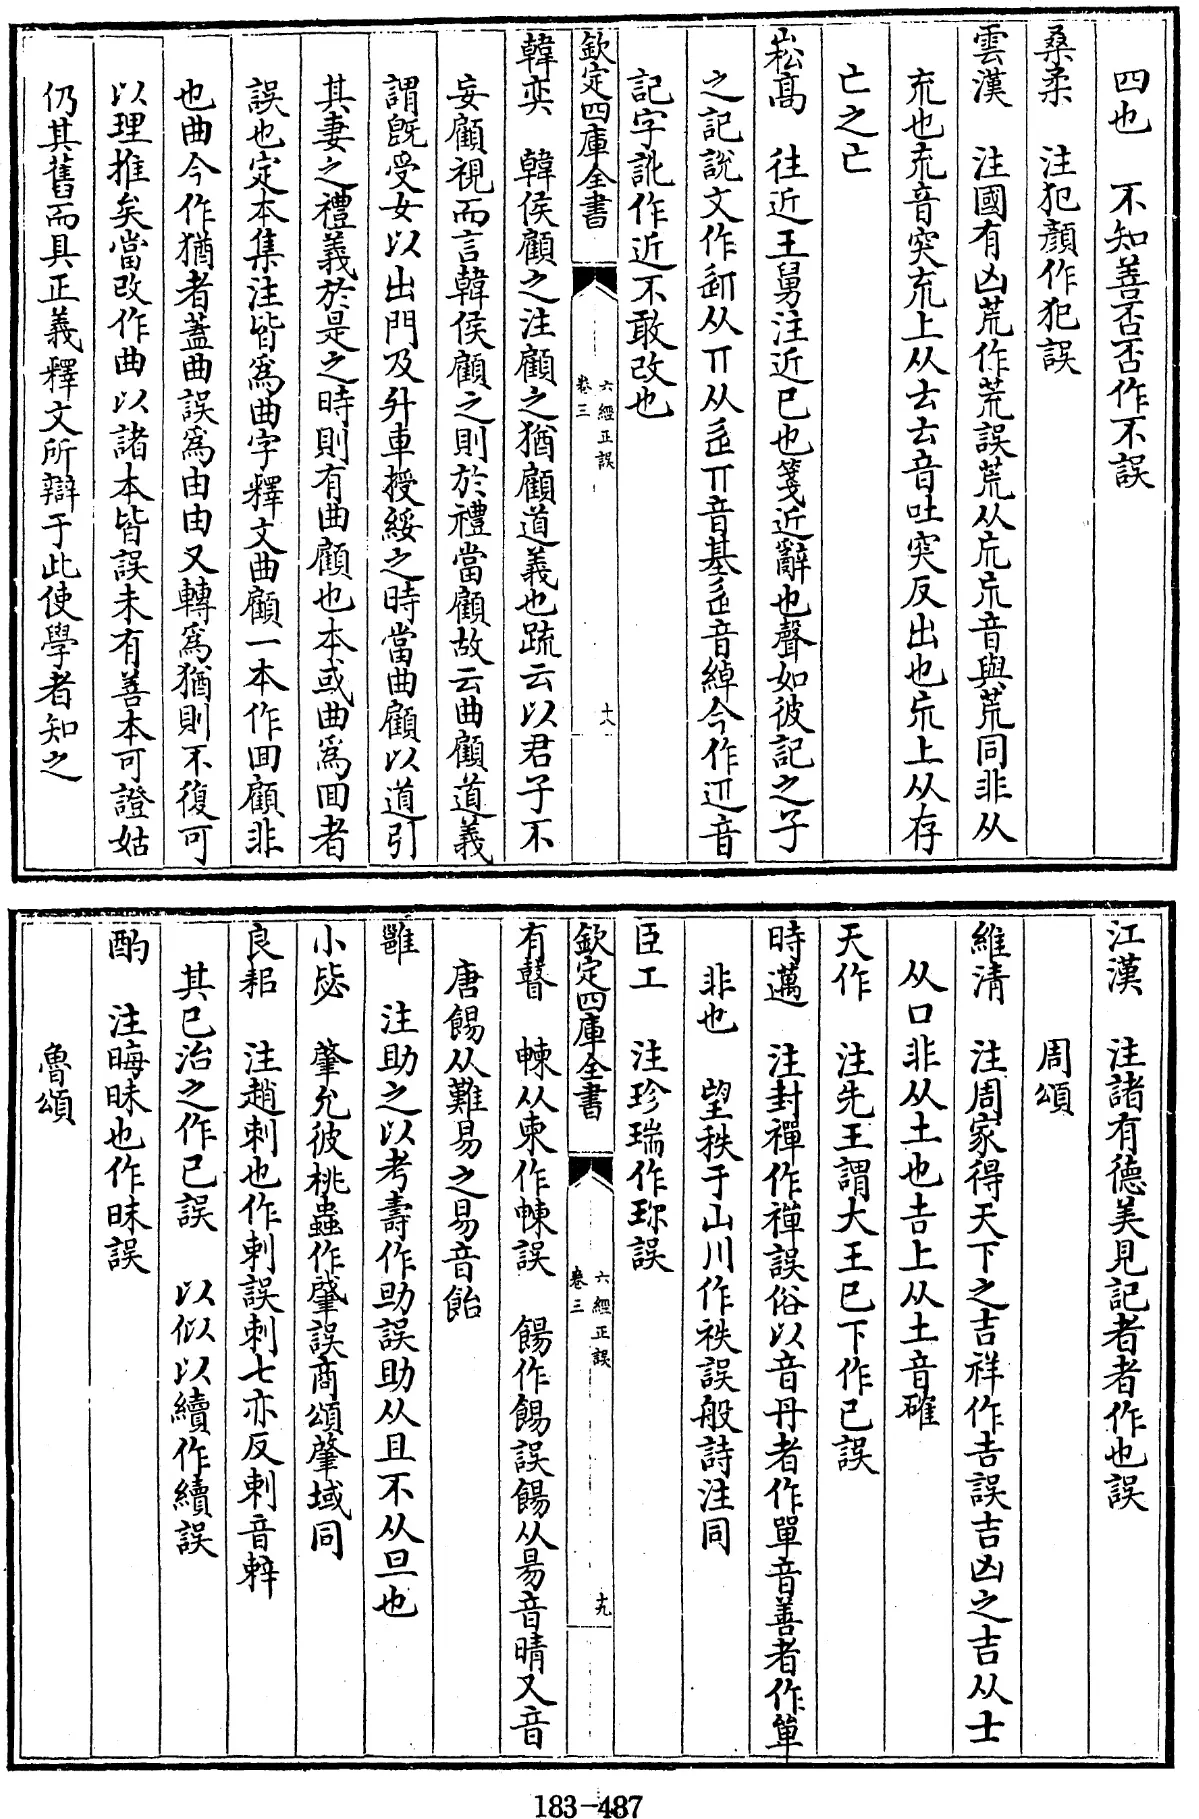 四也　不知善否否作不誤
桑柔　注犯顏作犯誤
雲漢　注國有凶荒作荒誤荒从㠩㠩音與荒同非从
㐬也㐬音突㐬上从去去音吐突反出也㠩上从存
亡之亡
崧高　往近王舅注近已也箋近辭也聲如彼記之子
之記說文作𨒋从丌从辵丌音基辵音綽今作䢋音
記字訛作近不敢改也
欽定四庫全書
六經正誤
卷三
十八
韓奕　韓侯顧之注顧之猶顧道義也疏云以君子不
妄顧視而言韓侯顧之則於禮當顧故云曲顧道義
謂旣受女以出門及升車授綏之時當曲顧以道引
其妻之禮義於是之時則有曲顧也本或曲為回者
誤也定本集注皆為曲字釋文曲顧一本作回顧非
也曲今作猶者蓋曲誤為由由又轉為猶則不復可
以理推矣當改作曲以諸本皆誤未有善本可證姑
仍其舊而具正義釋文所辯于此使學者知之
江漢　注諸有德美見記者者作也誤
周頌
維清　注周家得天下之吉祥作吉誤吉凶之吉从士
从口非从土也𠮷上从土音確
天作　注先王謂大王已下作己誤
時邁　注封禪作禅誤俗以音丹者作單音善者作单
非也　望秩于山川作袟誤般詩注同
臣工　注珍瑞作珎誤
欽定四庫全書
六經正誤
卷三
十九
有瞽　㡃从柬作㡃誤　餳作餳誤餳从昜音晴又音
唐餳从難易之易音飴
雝　注助之以考壽作助誤助从且不从旦也
小毖　肇允彼桃蟲作肈誤商頌肇域同
良耜　注趙刺也作剌誤刺七亦反剌音辢
其已治之作己誤　以似以續作續誤
酌　注晦昧也作昩誤
魯頌
183-487